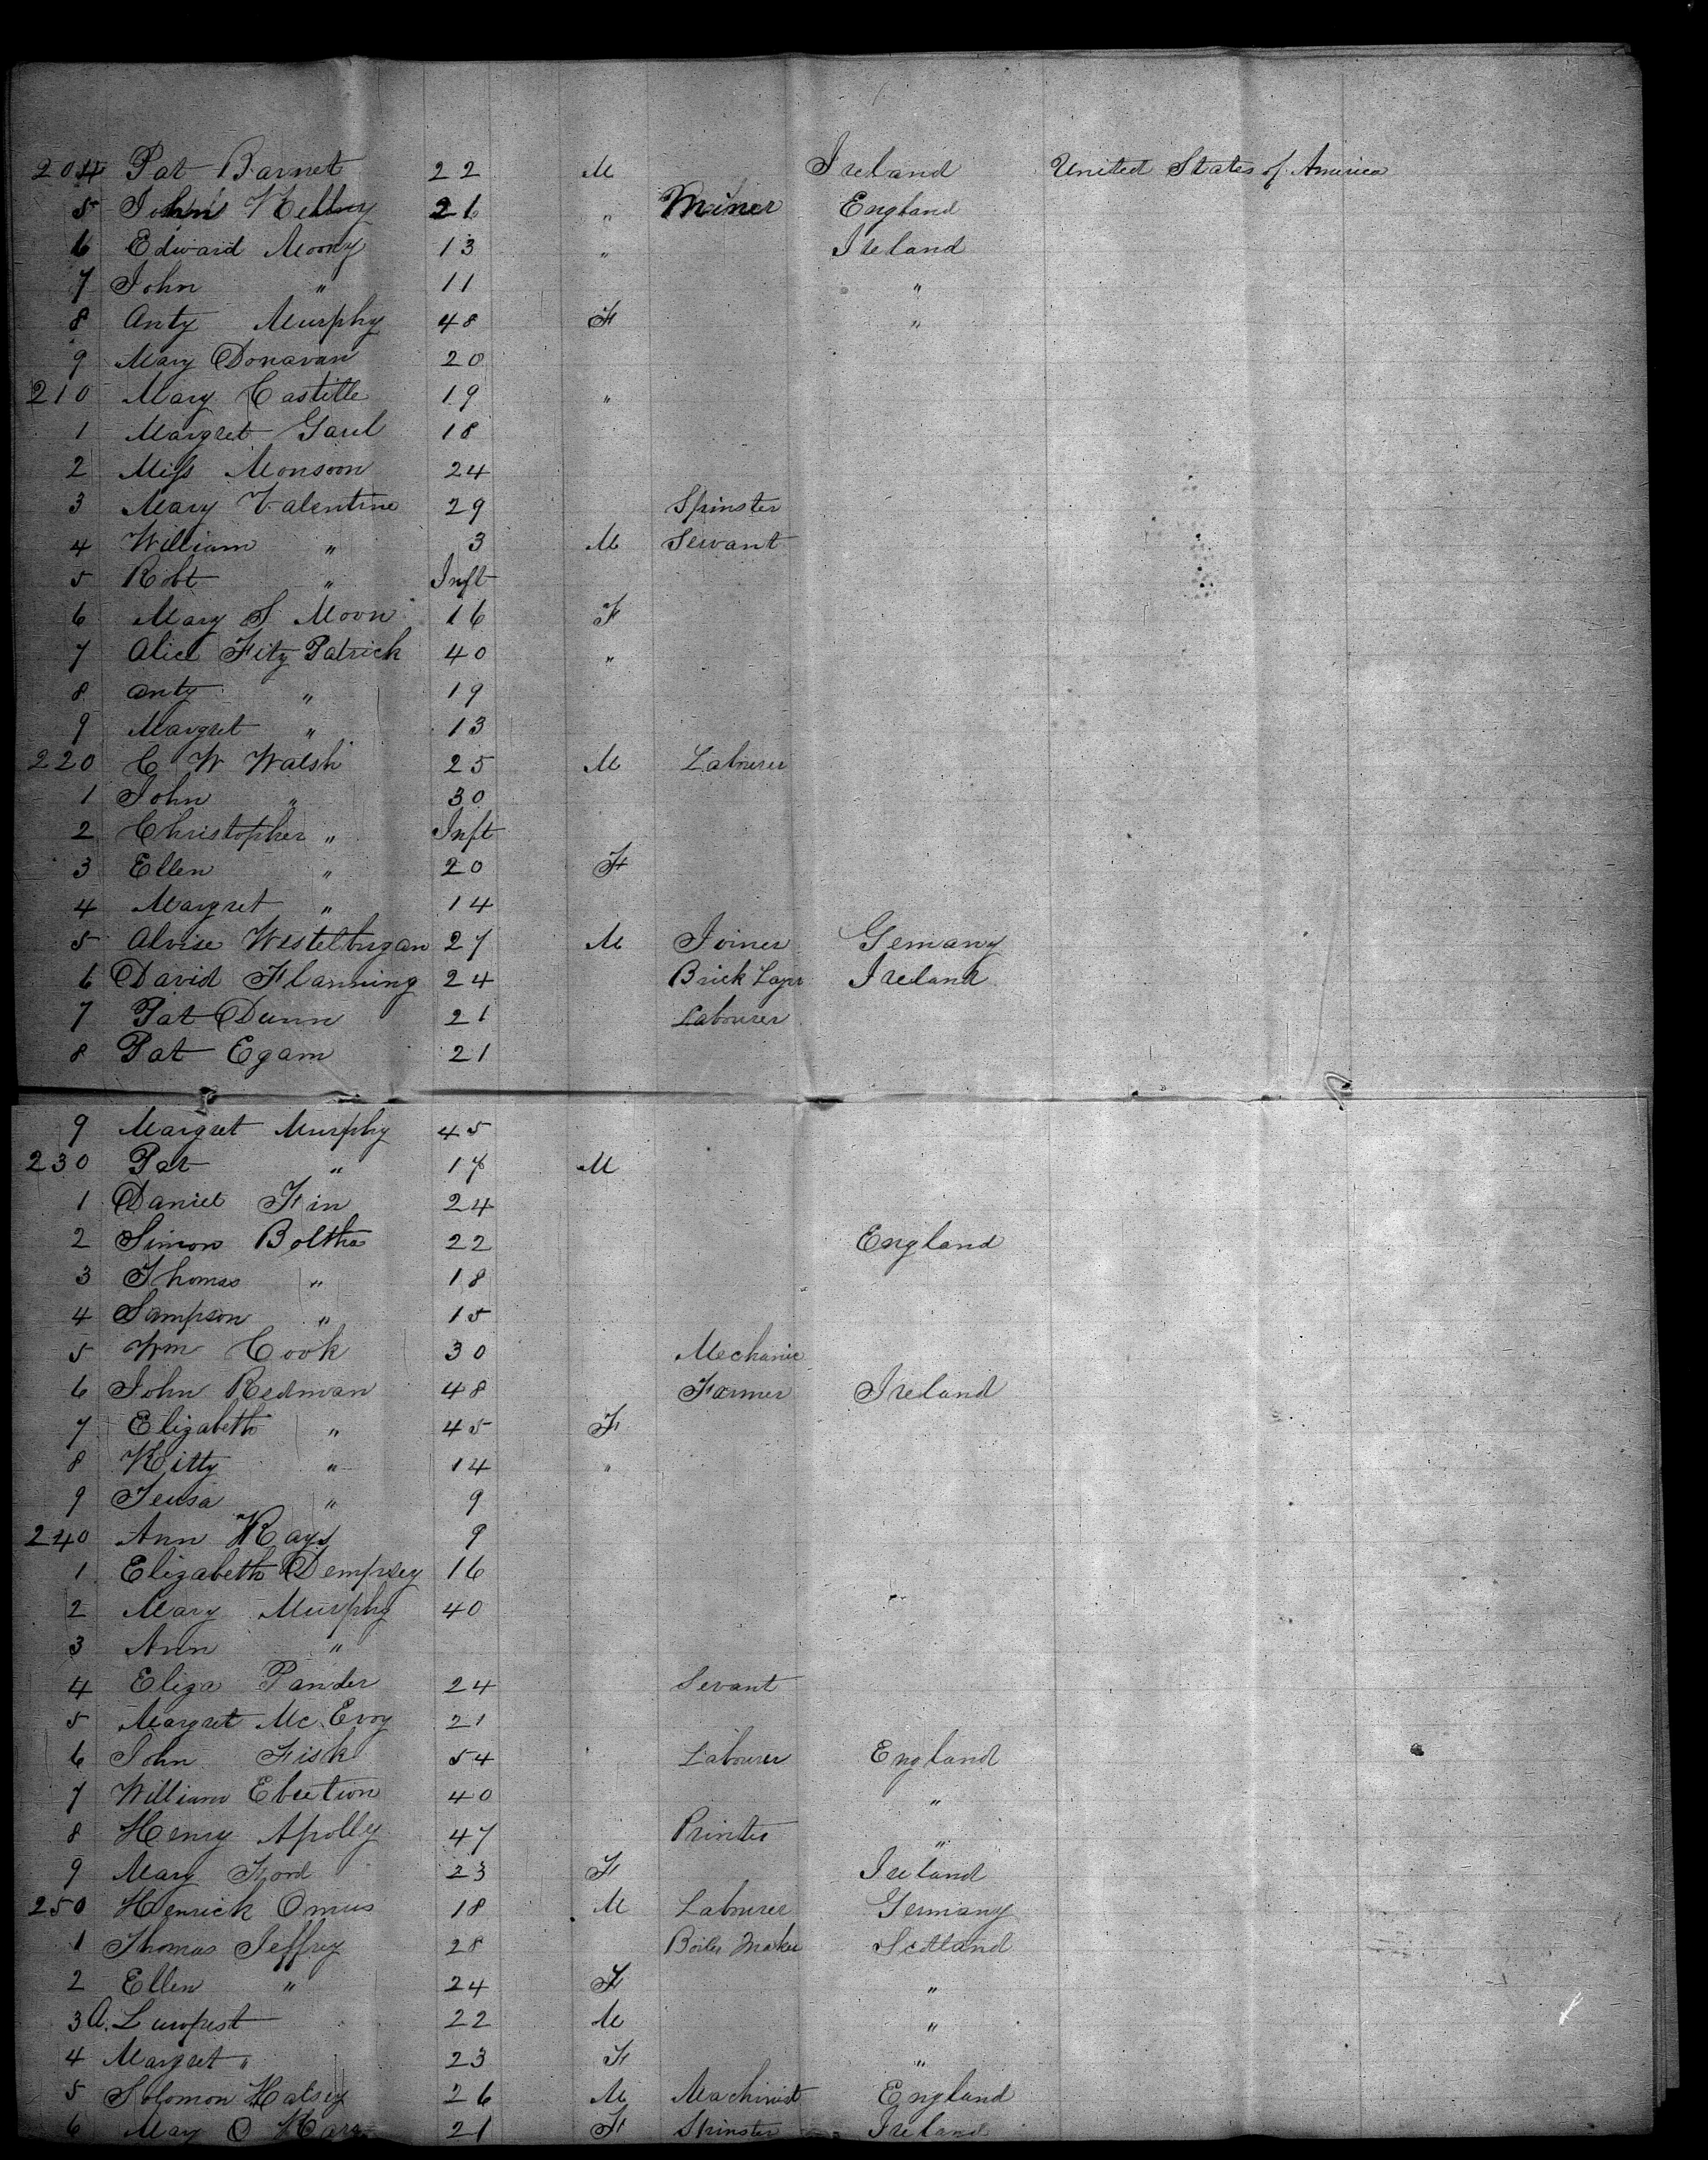 204 Pat Barnet 22 M Ireland United States of America
5 John Kelley 21 " Miner England
6 Edward Moony 13 " Ireland
7 John " 11 "
8 Anty Murphy 48 F "
9 Mary Donavan 20
210 Mary Castille 19 "
1 Margret Gaul 18
2 Miss Monsoon 24
3 Mary Valentine 29 Spinster
4 William " 3 M Servant
5 Robt " Inft
6 Mary S Moon 16 F
7 Alice Fitz Patrick 40 "
8 Anty " 19
9 Margret " 13
220 C W Walsh 25 M Labourer
1 John " 30
2 Christopher " Inft
3 Ellen " 20 F
4 Margret " 14
5 Alvise Westelbugan 27 M Joiner Gemany
6 David Flanning 24 Brick Layr Ireland
7 Pat Dunn 21 Labourer
8 Pat Egam 21
9 Margret Murphy 45
230 Pat " 18 M
1 Daniel Fin 24
2 Simon Boltha 22 England
3 Thomas " 18
4 Sampson " 15
5 Wm Cook 30 Mechanic
6 John Redman 48 Farmer Ireland
7 Elizabeth " 45 F
8 Kitty " 14 "
9 Teusa " 9
240 Ann Kays 9
1 Elizabeth Dempsey 16
2 Mary Murphy 40
3 Ann "
4 Eliza Pander 24 Sevant
5 Margret Mc Evoy 21
6 John Fisk 54 Labourer England
7 William 40 "
8 Henry Apolly 47 Printer "
9 Mary Ford 23 F Ireland
250 Henrick Omus 18 M Labourer Germany
1 Thomas Jeffrey 28 Boiler Maker Scotland
2 Ellen " 24 F "
3 A. 22 M "
4 Margret " 23 F "
5 Solomon Halsey 26 M Machinist England
6 Mary O Hara 21 F Spinster Ireland